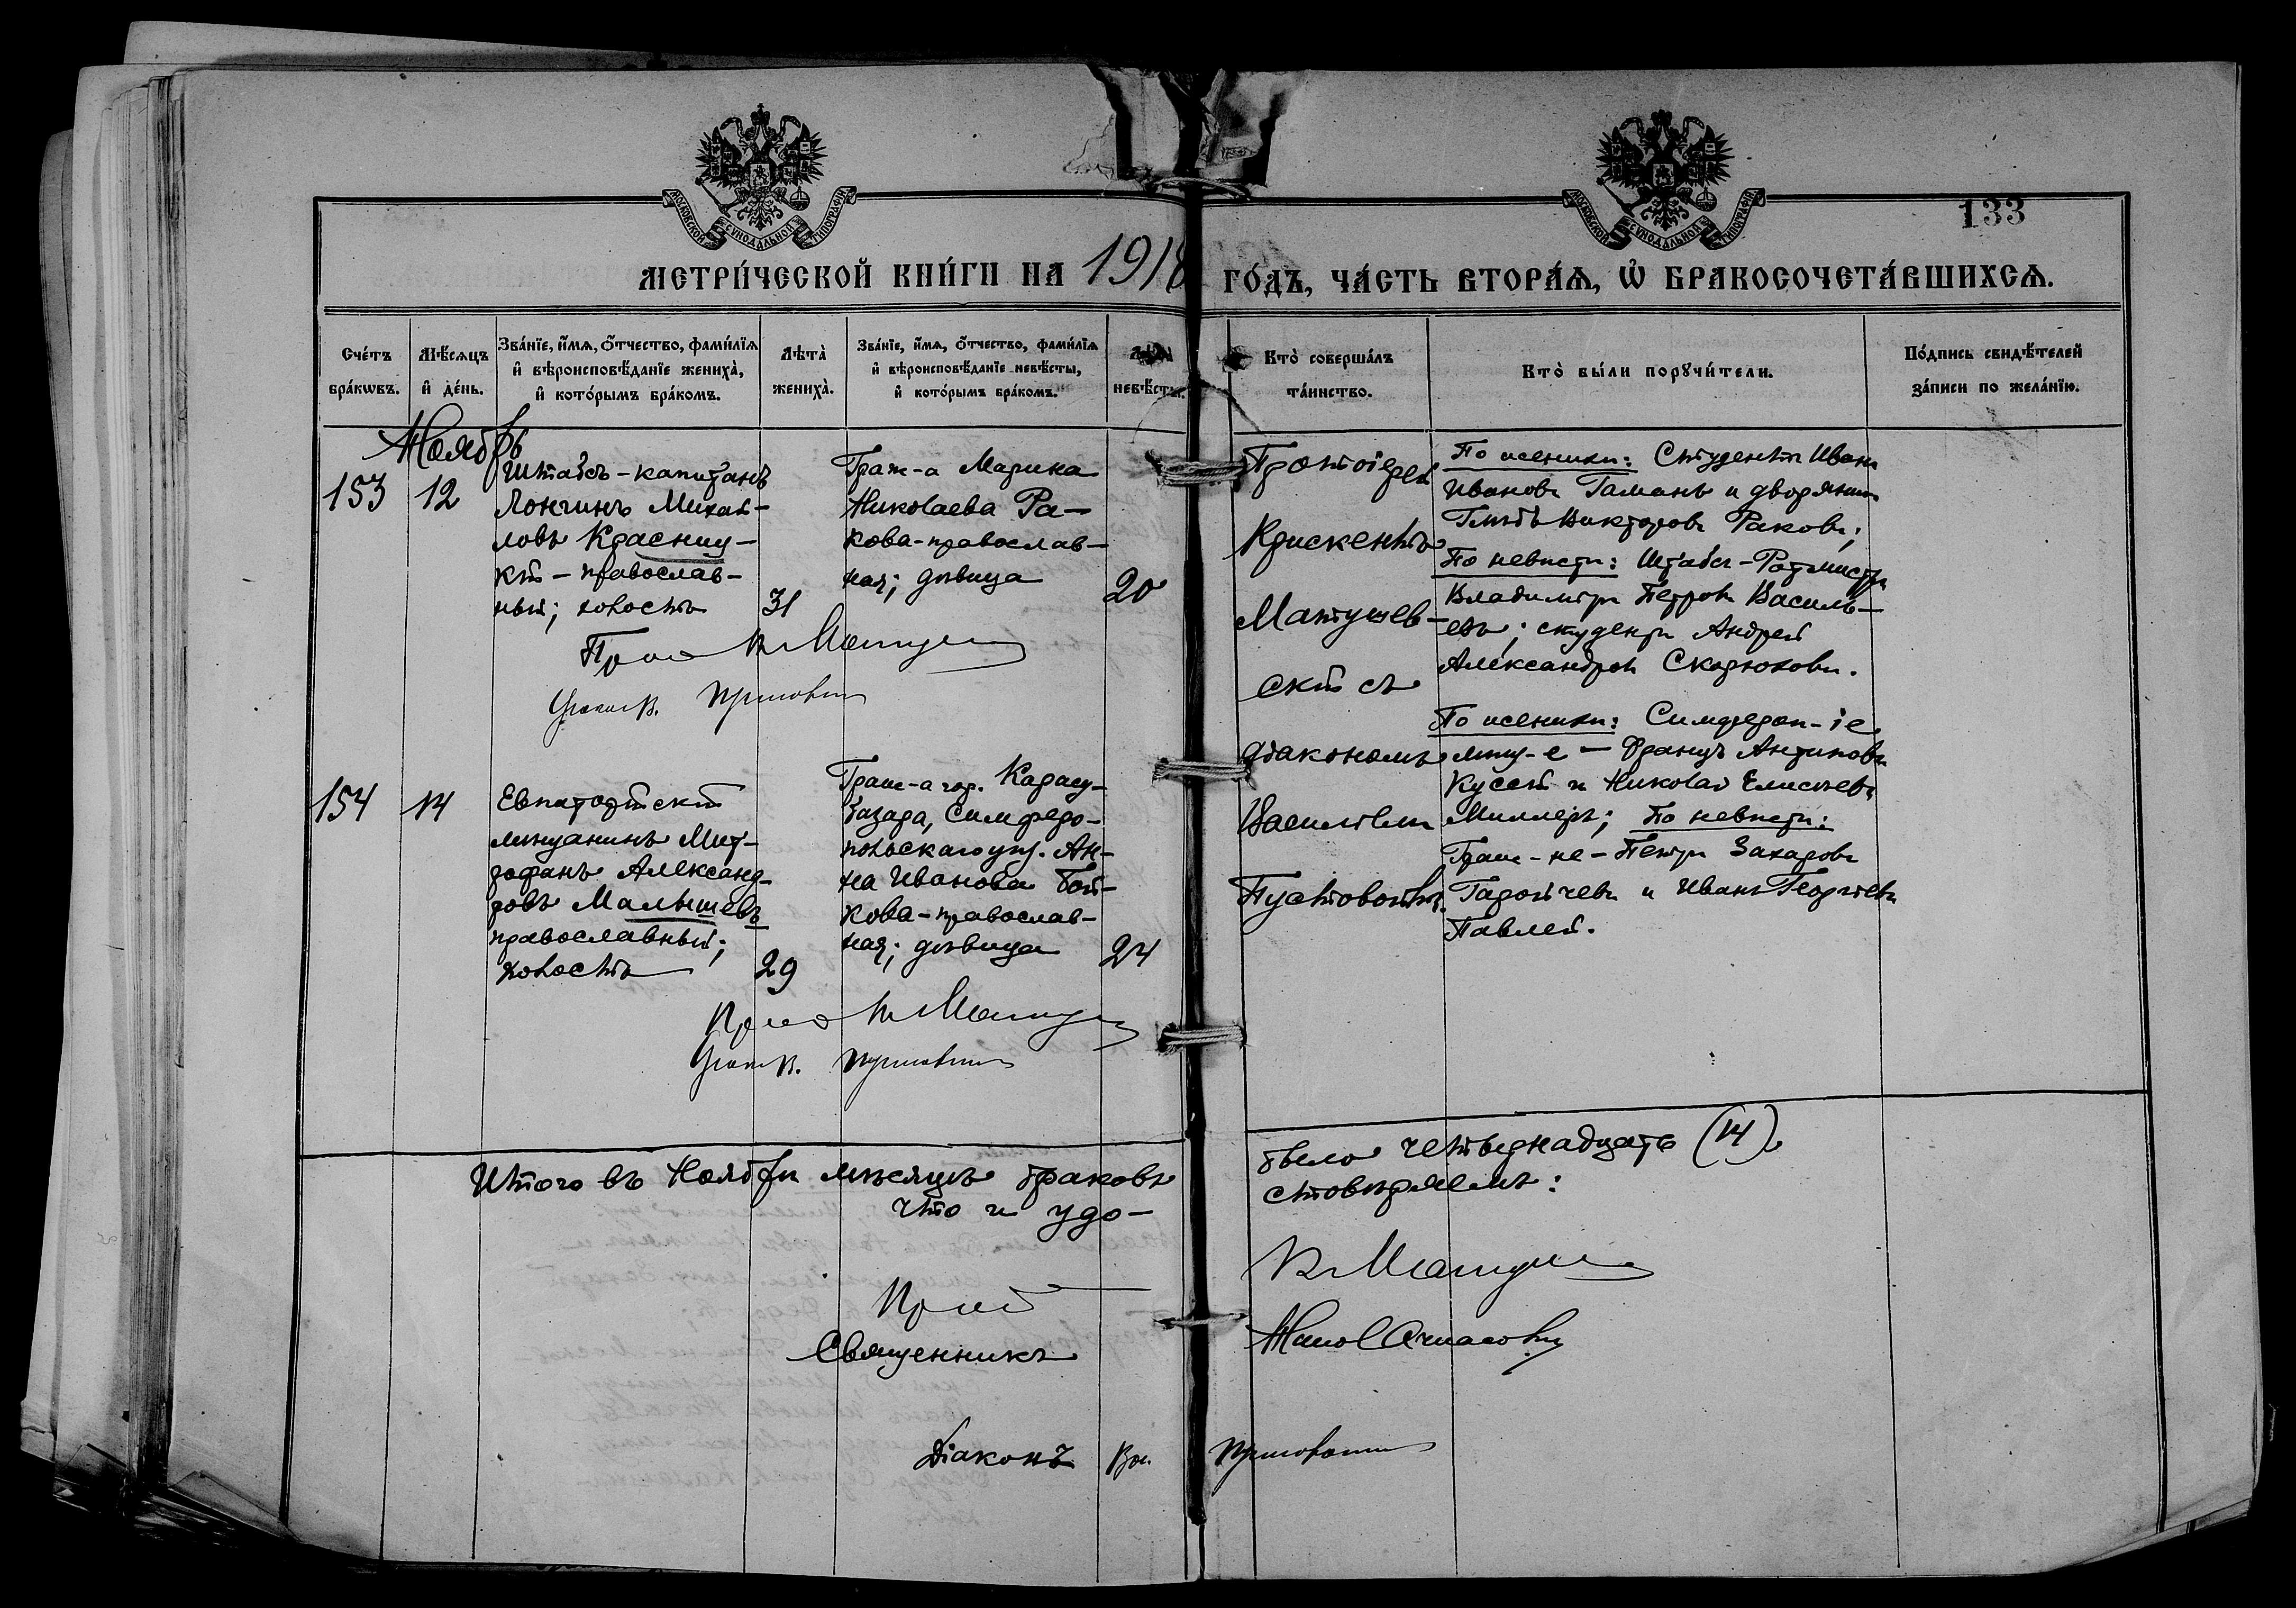 МОСКОВСКОЙ СѴНОДАЛЬНОЙ ТИПОГРАФІИ
МОСКОВСКОЙ СѴНОДАЛЬНОЙ ТИПОГРАФІИ
133
МЕТРИ́ЧЕСКОЙ КНИ́ГИ НА 1918 ГО́ДЪ, ЧА́СТЬ ВТОРА́Ѧ, Ѽ БРАКОСОЧЕТА́ВШИХСѦ.
Сче́тъ
бра́кѡвъ.
Мѣ́сѧцъ
и҆ де́нь.
Зва́нїе, и҆́мѧ, ѻ҆́тчество, фами́лїѧ
и҆ вѣроисповѣ́данїе жениха̀,
и҆ кото́рымъ бра́комъ.
Лѣта̀
жениха̀.
Зва́нїе, и҆́мѧ, ѻ҆́тчество, фами́лїѧ
и҆ вѣроисповѣ́данїе невѣ́сты,
и҆ кото́рымъ бра́комъ.
Лѣта̀
невѣ́сты.
Кто̀ соверша́лъ
та́инство.
Кто̀ бы́ли порꙋчи́тели.
По́дпись свидѣ́телей
за́писи по жела́нїю.
Ноябрь
153
12
Штабсъ-капитанъ
Лонгинъ Михай-
ловъ Красниц-
кій - православ-
ный; холостъ
31
Граж-а Марина
Николаева Ра-
кова-православ-
ная; дѣвица
20
Протоіерей
Крискентъ
Матушев-
скій съ
діакономъ
Василіемъ
Пустовойтъ.
По женихѣ: Студентъ Иванъ
Ивановъ Гаманъ и дворянинъ
Глѣбъ Викторовъ Раковъ;
По невѣстѣ: Штабсъ-Ротмистръ
Владиміръ Петровъ Василь-
евъ; студентъ Андрей
Александровъ Скадовъ.
154
14
Евпаторійскій
мѣщанинъ Мит-
рофанъ Александ-
ровъ Малышевъ
православный;
холостъ
29
Граж-а гор. Карасу-
базара, Симферо-
польскаго уѣз. Ан-
на Иванова Бой-
кова-православ-
ная; дѣвица
24
По женихѣ: Симфероп-іе
мѣщ-е - Францъ Антиповъ
Кусей и Николай Елисѣевъ
Миллеръ; По невѣстѣ:
Граж-не - Петръ Захаровъ
Гаройчевъ и Иванъ Георгіевъ
Павлей.
Итого въ Ноябрѣ мѣсяцѣ браковъ было четырнадцать (14),
что и удо-
стовѣряемъ:
Священникъ
Діаконъ